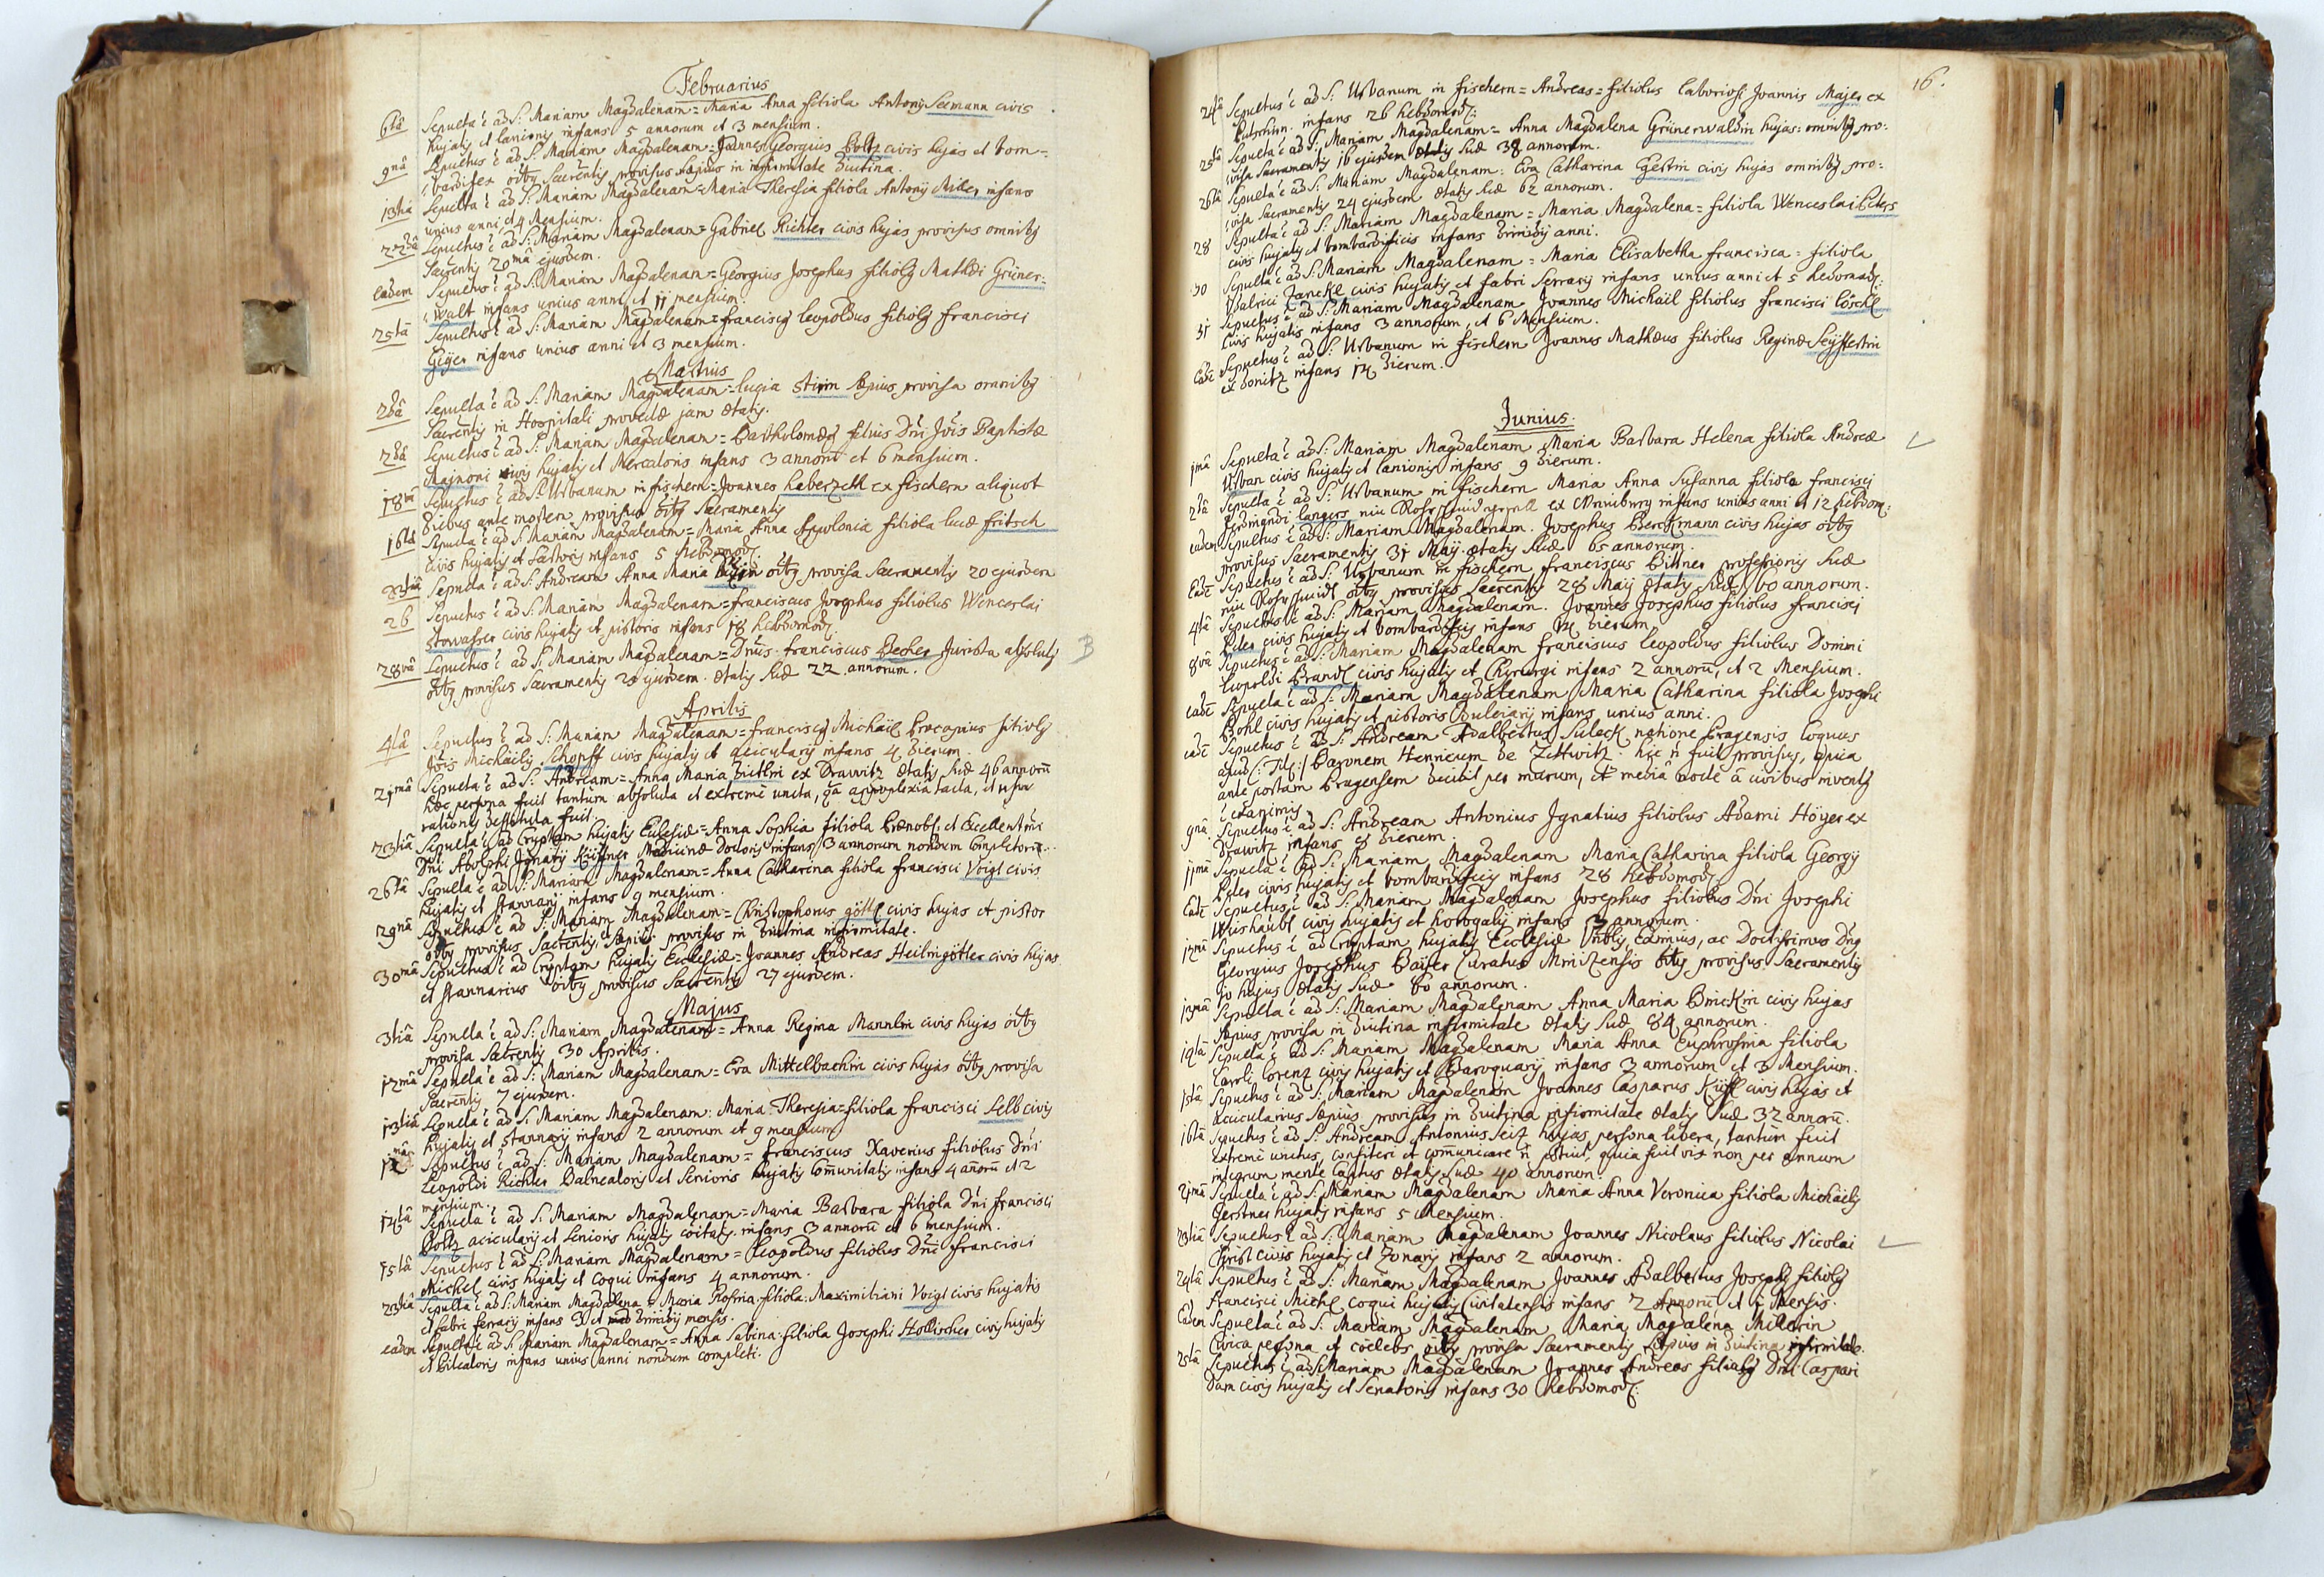 Februarius
6tâ Sepulta ẽ ad S: Mariam Magdalenam = Maria Anna filiola Antonij Seemann civis
hujatis et lanionis infans 5 annorum et 3 mensium.
9nâ Sepultus ẽ ad S: Mariam Magdalenam = Joannes Georgius Boltz civis hujas et bom=
bardifex oĩbq Sacrẽntis provisus sæpius in infirmitate diutina.
13tiâ Sepulta ẽ ad S: Mariam Magdalenam = Maria Theresia filiola Antonij infans
unius anni et 4 Mensium.
22dâ Sepultus ẽ ad S: Mariam Magdalenam = Gabriel Richter civis hujas provisus omnibq
Sacrẽntis 20mâ ejusdem.
Eadem Sepultus ẽ ad S: Mariam Magdalenam = Georgius Josephus filiolq Mathæi Grüner=
walt infans unius anni et 11 mensium.
25tâ Sepultus ẽ ad S: Mariam Magdalenam = franciscq Leopoldus filiolq francisci
Geÿer infans unius anni et 3 mensium.
Martius
2dâ Sepulta ẽ ad S: Mariam Magdalenam = Lucia sæpius provisa omnibq
Sacrẽntis in Hospitali provectæ jam ætatis.
2dâ Sepultus ẽ ad S: Mariam Magdalenam = Bartholomæq filius Dñi Jõis Baptistæ
Mainoni civis hujatis et Mercatoris infans 3 annorũ et 6 mensium.
18vâ Sepultus ẽ ad S: Urbanum in fischern = Joannes Haberzett ex fischern aliquot
diebus ante mortem provisus oĩbq Sacramentis
16tâ Sepulta ẽ ad S: Mariam Magdalenam = Maria Anna Apolonia filiola Lucæ fritsch
civis hujatis et infans 5 hebdomad:
23tiâ Sepulta ẽ ad S: Andream Anna Maria oĩbq provisa Sacramentis 20 ejusdem
26 Sepultus ẽ ad S: Mariam Magdalenam = franciscus Josephus filiolus Wenceslai
Stowasser civis hujatis et pistoris infans 18 hebdomad:
28vâ Sepultus ẽ ad S: Mariam Magdalenam = Dñus franciscus Becher Jurista absolutq B
oĩbq provisus Sacramentis ejusdem. ætatis suæ 22 annorum.
Aprilis
4tâ Sepultus ẽ ad S: Mariam Magdalenam = franciscq Michaël Procopius filiolq
Jõis Michaëlis Schopff civis hujatis et acicularij infans 4 dierum
21mâ Sepulta ẽ ad S: Andream = Anna Maria ex Drawitz ætatis suæ 46 annorũ
hæc persona fuit tantùm absoluta et extremè uncta, qã appoplexia tacta, et usu
rationis destituta fuit.
23tiâ Sepulta ẽ ad Cryptam hujatis Ecclesiæ = Anna Sophia filiola Prænobl: et Excellentmi
Dñi Adolphi Ignatij Medicinæ Doctoris infans 3 annorum nondum completorũ.
26tâ Sepulta ẽ ad S: Mariam Magdalenam = Anna Catharina filiola francisci Voigt civis
hujatis et stannarij infans 9 mensium.
29nâ Sepultus ẽ ad S: Mariam Magdalenam = Christophorus göttl civis hujas et pistor
oĩbq provisus Sacrẽntis, et sæpius provisus in diutina infirmitate.
30mâ Sepultus ẽ ad Cryptam hujatis Ecclesiæ = Joannes Andreas Heilingötter civis hujas
et stannarius oĩbq provisus Sacrẽntis 27 ejusdem.
Majus
3tiâ Sepulta ẽ ad S: Mariam Magdalenam = Anna Regina Mannlin civis hujas oĩbq
provisa Sacrẽntis 30 Aprilis.
12mâ Sepulta ẽ ad S: Mariam Magdalenam = Eva Mittelbachin civis hujas oĩbq provisa
Sacrẽntis 7 ejusdem.
13tiâ Sepulta ẽ ad S: Mariam Magdalenam: Maria Theresia filiola francisci Selb civis
hujatis et stannarij infans 2 annorum et 9 mensium
Sepultus ẽ ad S: Mariam Magdalenam = franciscus Xaverius filiolus Dñi
Leopoldi Richter Balneatoris et Senioris hujatis Com̃unitatis infans 4 añorũ et 2
mensium.
14tâ Sepulta ẽ ad S: Mariam Magdalenam = Maria Barbara filiola Dñi francisci
Boltz acicularij et Senioris hujatis cõitatis infans 3 annorũ et 6 mensium.
15tâ Sepultus ẽ ad S: Mariam Magdalenam = Leopoldus filiolus Dñi francisci
Michel civis hujatis et coqui infans 4 annorum.
23tiâ Sepulta ẽ ad S: Mariam Magdalena = Maria Rosina filiola Maximiliani Voigt civis hujatis
et fabri ferrarij infans 3 et dimidij mensis.
eadem Sepulta ẽ ad S: Mariam Magdalenam = Anna Sabina filiola Josephi Hollischer civis hujatis
et infans unius anni nondum completi.
16.
24tâ Sepultus ẽ ad S: Urbanum in fischern = Andreas = filiolus laboriosi Joannis Majer ex
infans 26 hebdomad:
25tâ Sepulta ẽ ad S: Mariam Magdalenam = Anna Magdalena Grünerwaldin hujas: omnibq pro:
visa Sacramentis 16 ejusdem ætatis suæ 38 annorum.
26tâ Sepulta ẽ ad S: Mariam Magdalenam: Eva Catharina civis hujas omnibq pro:
visa Sacramentis 24 ejusdem ætatis suæ 62 annorum.
28 Sepulta ẽ ad S: Mariam Magdalenam = Maria Magdalena = filiola Wenceslai Eders
civis hujatis et bombardificis infans dimidij anni.
30 Sepulta ẽ ad S: Mariam Magdalenam = Maria Elisabetha francisca = filiola
Udalrici Janckl civis hujatis et fabri Serrarij infans unius anni et 5 hebdomad:
31 Sepultus ẽ ad S: Mariam Magdalenam Joannes Michaël filiolus francisci Löschl
civis hujatis infans 3 annorum, et 6 Mensium.
Eadẽ Sepultus ẽ ad S: Urbanum in fischern Joannes Mathæus filiolus Reginæ Seÿffertin
ex Donitz infans 14 dierum.
Junius.
1mâ Sepulta ẽ ad S: Mariam Magdalenam Maria Barbara Helena filiola Andreæ
Urban civis hujatis et lanionis infans 9 dierum.
2dâ Sepulta ẽ ad S: Urbanum in fischern Maria Anna Susanna filiola francisci
ferdinandi Langers ex infans unius anni et 12 hebdom:
eadem Sepultus ẽ ad S: Mariam Magdalenam. Josephus Berckmann civis hujas oĩbq
provisus Sacramentis 31 Maij ætatis suæ 65 annorum.
Eadẽ Sepultus ẽ ad S: Urbanum in fischern franciscus Bittner professionis suæ
oĩbq provisus Sacrẽntis 28 Maij ætatis suæ 60 annorum.
4tâ Sepultus ẽ ad S: Mariam Magdalenam. Joannes Josephus filiolus francisci
Eder civis hujatis et bombardificis infans 14 dierum
8vâ Sepultus ẽ ad S: Mariam Magdalenam franciscus Leopoldus filiolus Domini
Leopoldi Brandl civis hujatis et Chyrurgi infans 2 annorũ, et 2 Mensium.
eadẽ Sepulta ẽ ad S: Mariam Magdalenam Maria Catharina filiola Josephi
Bohl civis hujatis et pistoris dulciarij infans unius anni.
eadẽ Sepultus ẽ ad S: Andream Adalbertus Suleck natione Pragensis coquus
apud (: Tit: /Baronem Henricum de Zittwitz hic ñ fuit provisus, quia
ante portam Pragensem cecidit per murum, et mediâ nocte â civibus inventq
ẽ exanimis
9nâ Sepultus ẽ ad S: Andream Antonius Ignatius filiolus Adami Höÿer ex
Drawitz infans 8 dierum.
11mâ Sepulta ẽ ad S: Mariam Magdalenam Maria Catharina filiola Georgij
Eder civis hujatis et bombardificis infans 28 hebdomad:
Eadẽ Sepultus ẽ ad S: Mariam Magdalenam Josephus filiolus Dñi Josephi
Wishäubl civis hujatis et horogalij infans 3 annorum.
12mâ Sepultus ẽ ad Cryptam hujatis Ecclesiæ Eximius, ac Doctissimus Dñq
Georgius Josephus Baÿer Curatus oĩbq provisus Sacramentis
10 hujus ætatis suæ 60 annorum.
13mâ Sepulta ẽ ad S: Mariam Magdalenam Anna Maria civis hujas
sæpius provisa in diutina infirmitate ætatis suæ 84 annorum.
14tâ Sepulta ẽ ad S: Mariam Magdalenam Maria Anna Euphrosina filiola
Caroli Lorenz civis hujatis et Baroquarij infans 3 annorum et 3 Mensium.
15tâ Sepultus ẽ ad S: Mariam Magdalenam Joannes Casparus civis hujas et
Acicularius sæpius provisus in diutina infirmitate ætatis suæ 32 annorũ.
16tâ Sepultus ẽ ad S: Andream Antonius Seitz hujas persona libera, tantùm fuit
extremè unctus, confiteri et com̃unicare ñ potuit, quia fuit vix non per annum
integrum mente captus ætatis suæ 40 annorum.
21mâ Sepulta ẽ ad S: Mariam Magdalenam Maria Anna Veronica filiola Michaëlis
Gerstner hujatis infans 5 mensium.
23tiâ Sepultus ẽ ad S: Mariam Magdalenam Joannes Nicolaus filiolus Nicolai
Christ civis hujatis et Zonarij infans 2 annorum.
24tâ Sepultus ẽ ad S: Mariam Magdalenam Joannes Adalbertus Josephq filiolq
francisci Michl coqui hujatis Civitatensis infans 2 Annorũ et 1 Mensis.
Eadem Sepulta ẽ ad S: Mariam Magdalenam Maria Magdalena Millerin
Civica persona et coelebs oĩbq provisa Sacramentis sæpius in diutina infirmitate.
25tâ Sepultus ẽ ad S: Mariam Magdalenam Joannes Andreas filiolq Dñi Caspari
Dam civis hujatis et Senatoris infans 30 hebdomad: